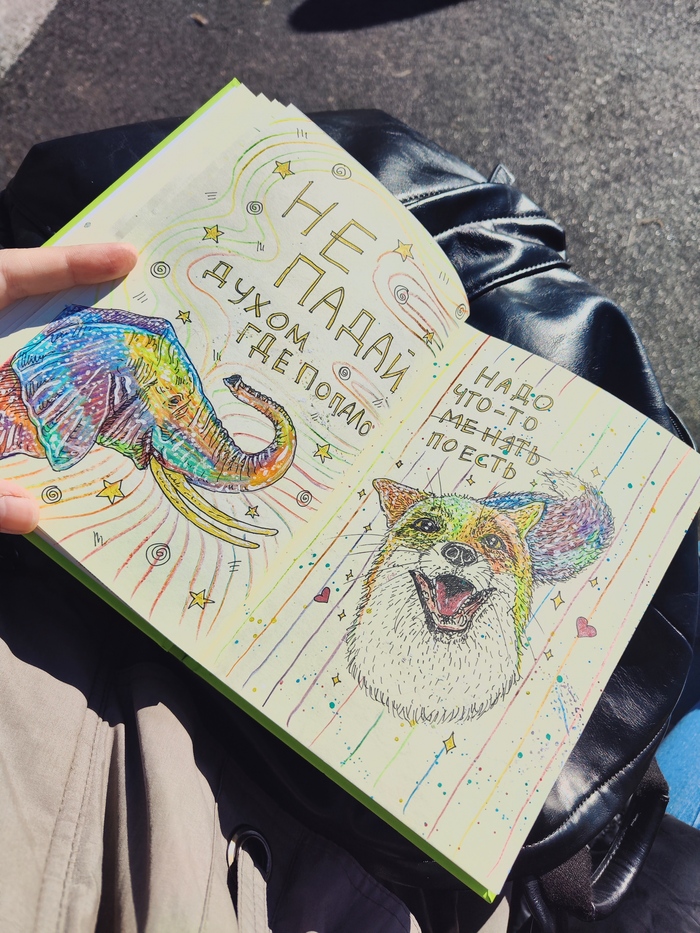 НЕ
ПАДАЙ
ДУХОМ
ГДЕ ПОПАЛО
НАДО
ЧТО-ТО
МЕНЯТЬ
ПОЕСТЬ